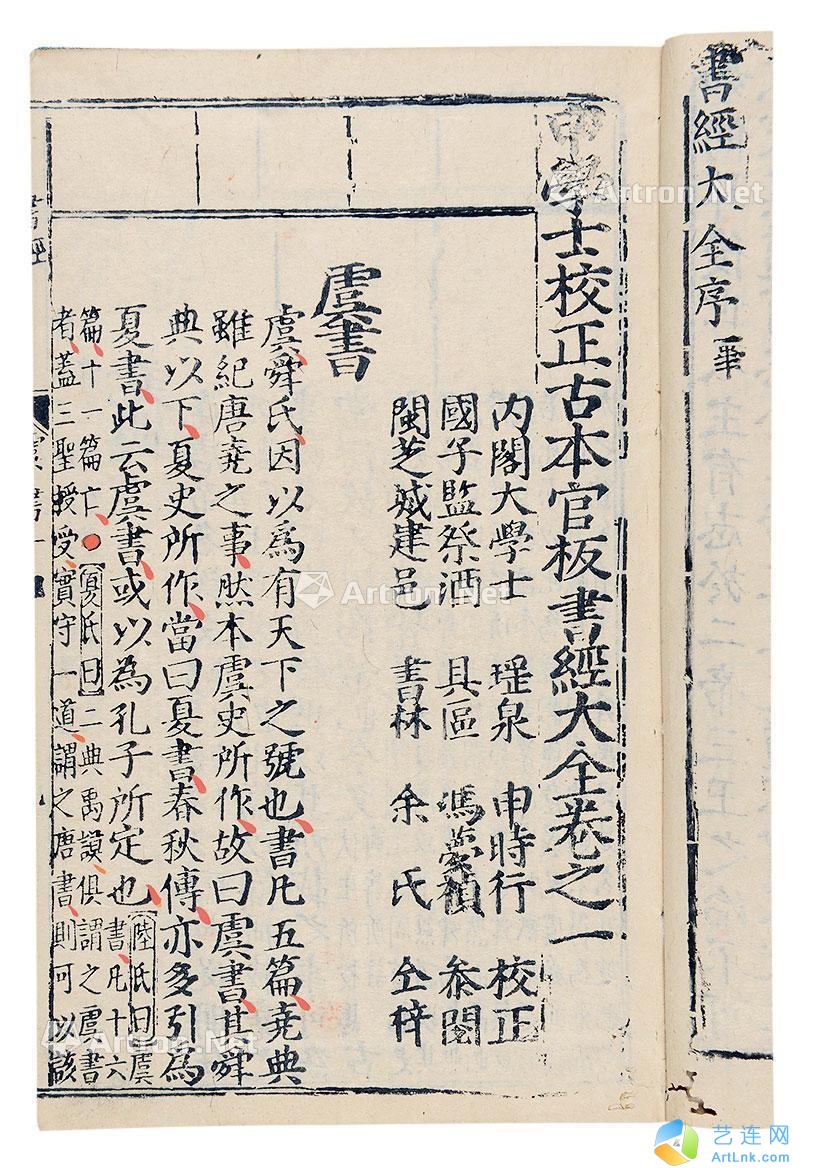 書經大全序 畢
申學士校正古本官板書經大全卷之一
內閣大學士 瑤泉 申時行 校正
國子監祭酒 具區 馮夢禎 叅閱
閩芝城建邑 書林 余氏 仝梓
虞書
虞舜氏因以為有天下之號也書凡五篇堯典
雖紀唐堯之事然本虞史所作故曰虞書其舜
典以下夏史所作當曰夏書春秋傳亦多引為
夏書此云虞書或以為孔子所定也陸氏曰虞
書凡十六
篇十一篇亡○夏氏曰二典禹謨俱謂之虞書
者蓋三聖授受實守一道謂之唐書則可以該
書經
虞書一
Artron.Net
Artron.Net
Artron.Net
艺连网
ArtLnk.com